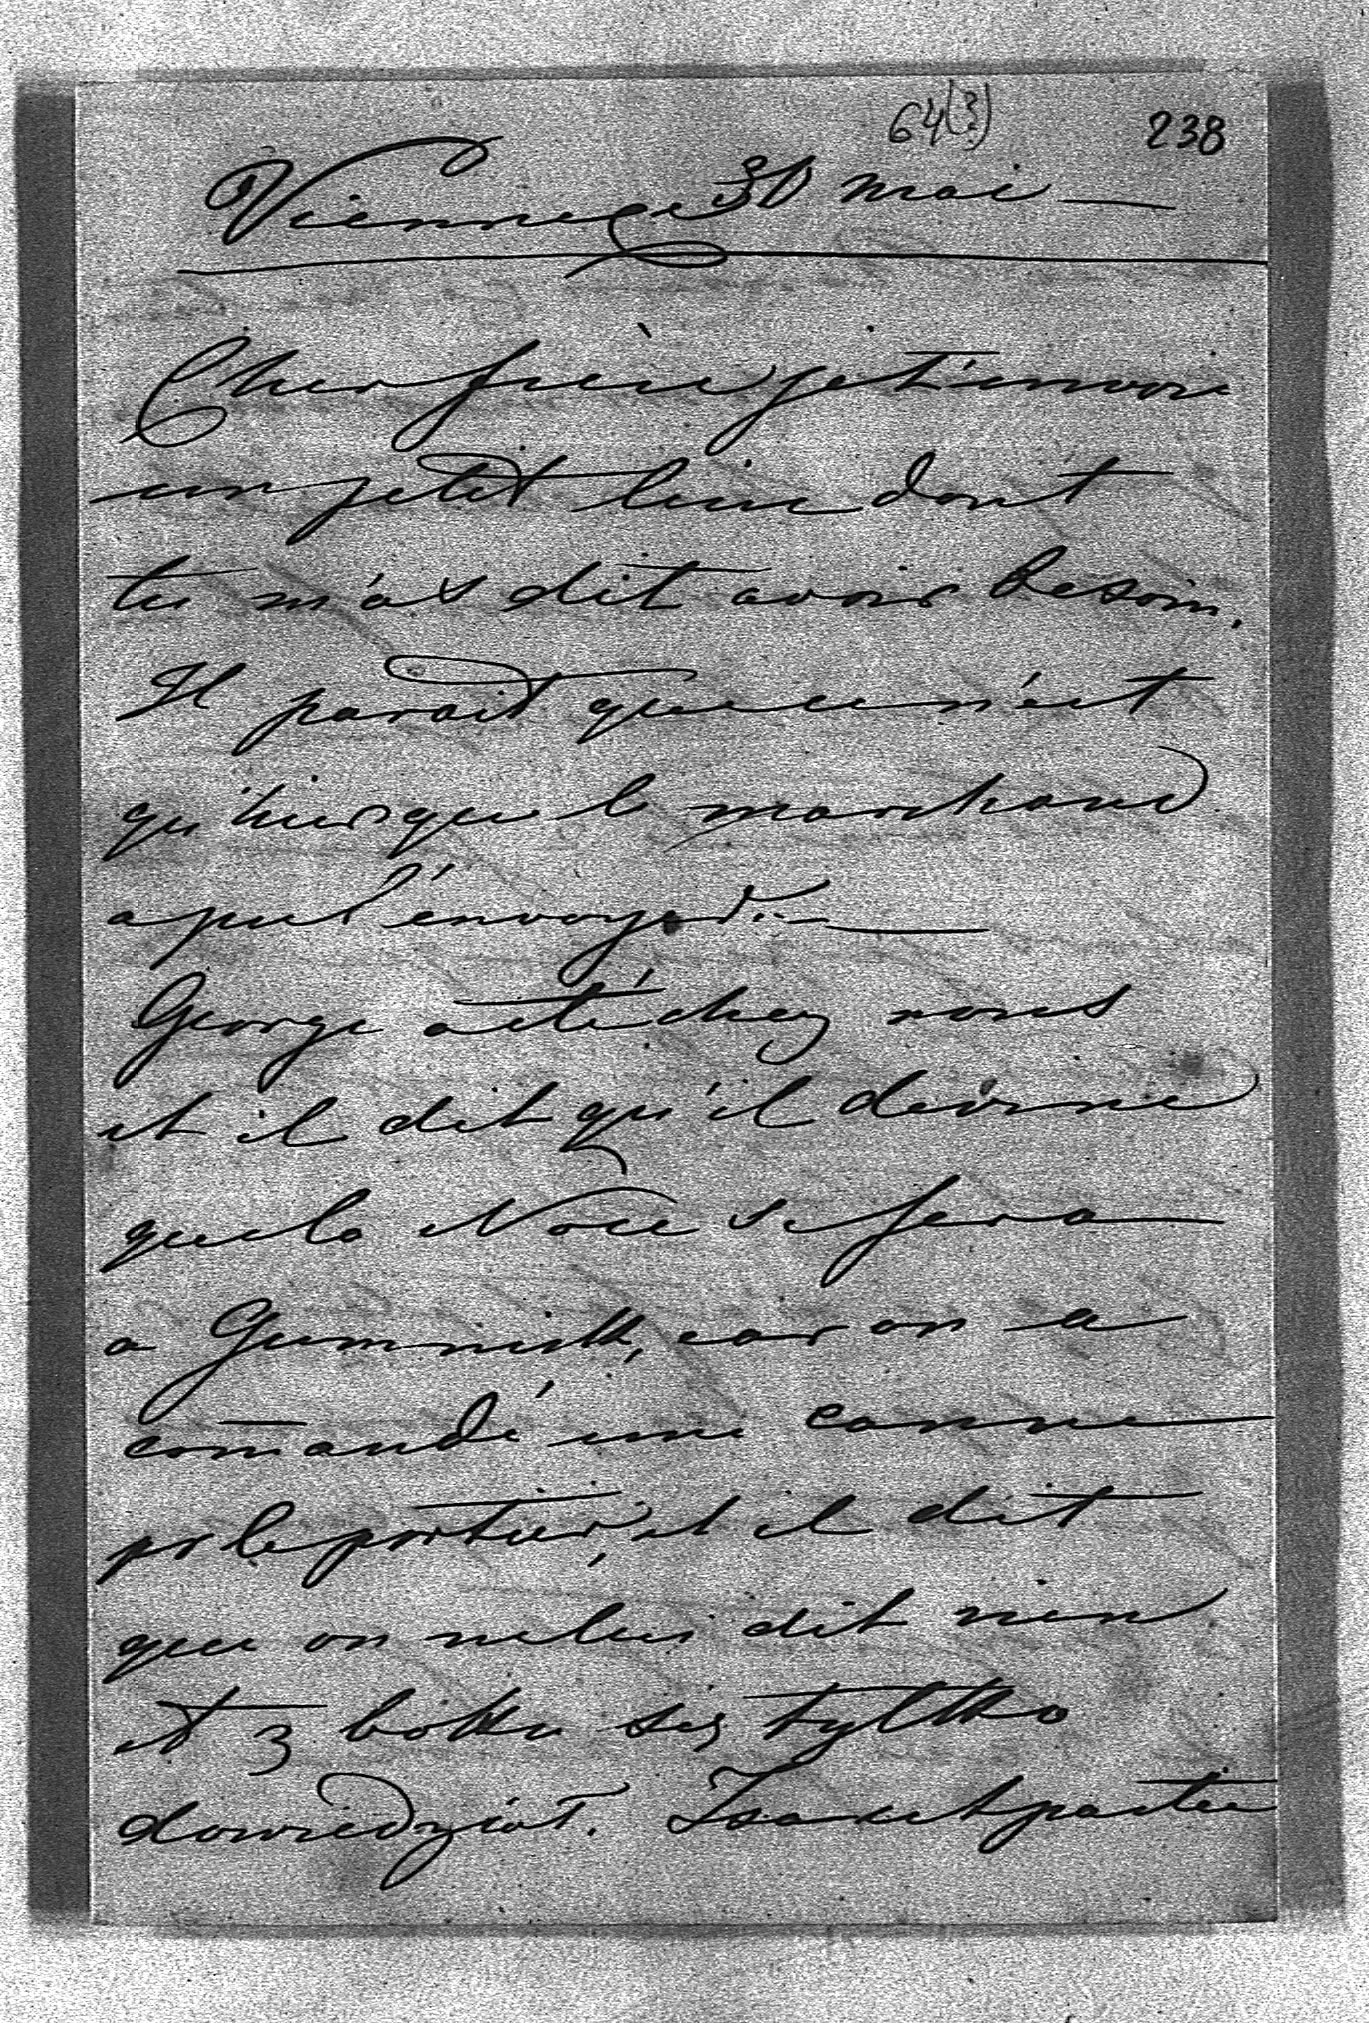 64(3)
238
Vienne ce 30 mai
Cher frère je t'envoie
un petit livre dont
tu m'as dit avoir besoin.
Il parait que ce n'est
qu'hier que le marchand
a pu l'envoyer
George a été chez nous
et il dit qu'il devine
que la Noce se fera
a Gumnisk, car on a
comandé une canne
pr le portier, et il dit
que on ne lui dit rien
et z boku się tylko
dowiedział. Isa est partie